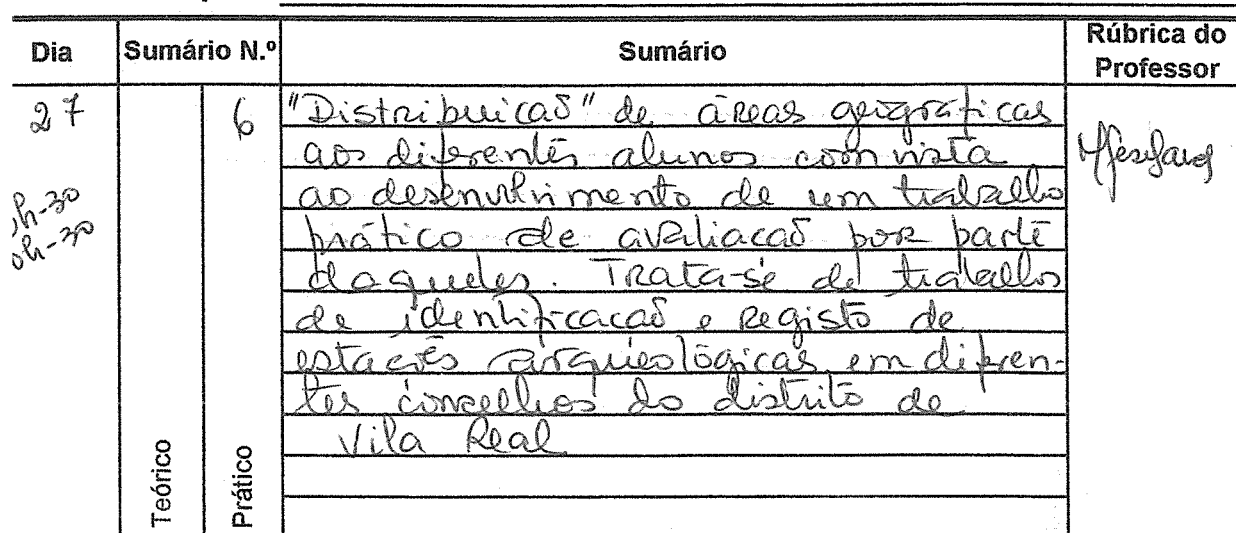 Dia Sumário N.º Sumário Rúbrica do Professor
27 6 "Distribuicaõ" de áreas geográficas
aos diferentes alunos com vista
ao desenvolvimento de um trabalho
prático de avaliacaõ por parte
daqueles. Trata-se de trabalhos
de identificacaõ e registo de
estacões arqueológicas em diferen-
tes concelhos do distrito de
Vila Real
Teórico
Prático